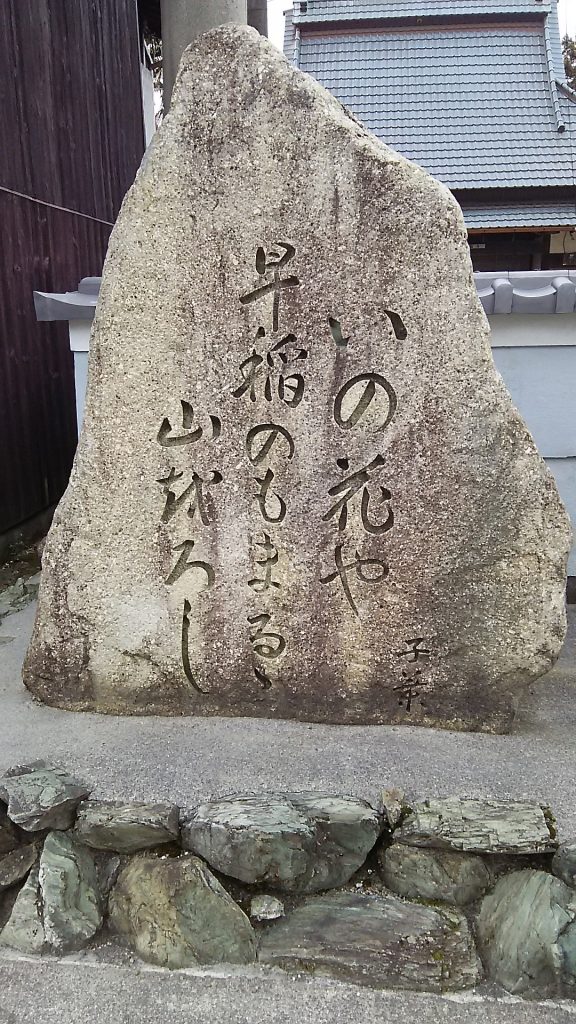 いの花や
早稲のもまるゝ
山越ろし
子葉